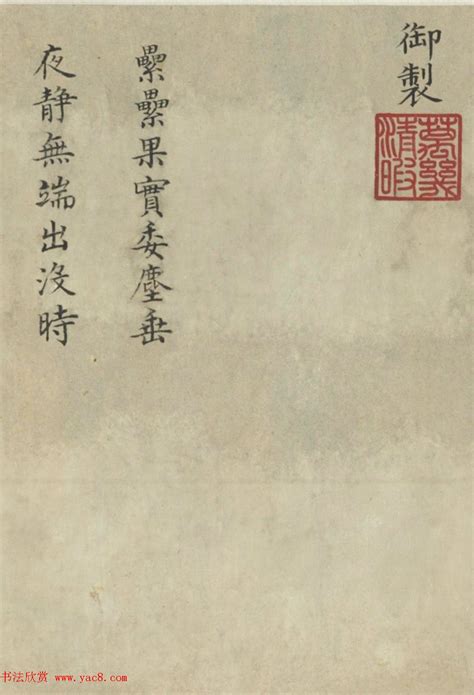 御製
萬幾清暇
纍壘果實委塵垂
夜靜無端出沒時
书法欣赏 www.yac8.com